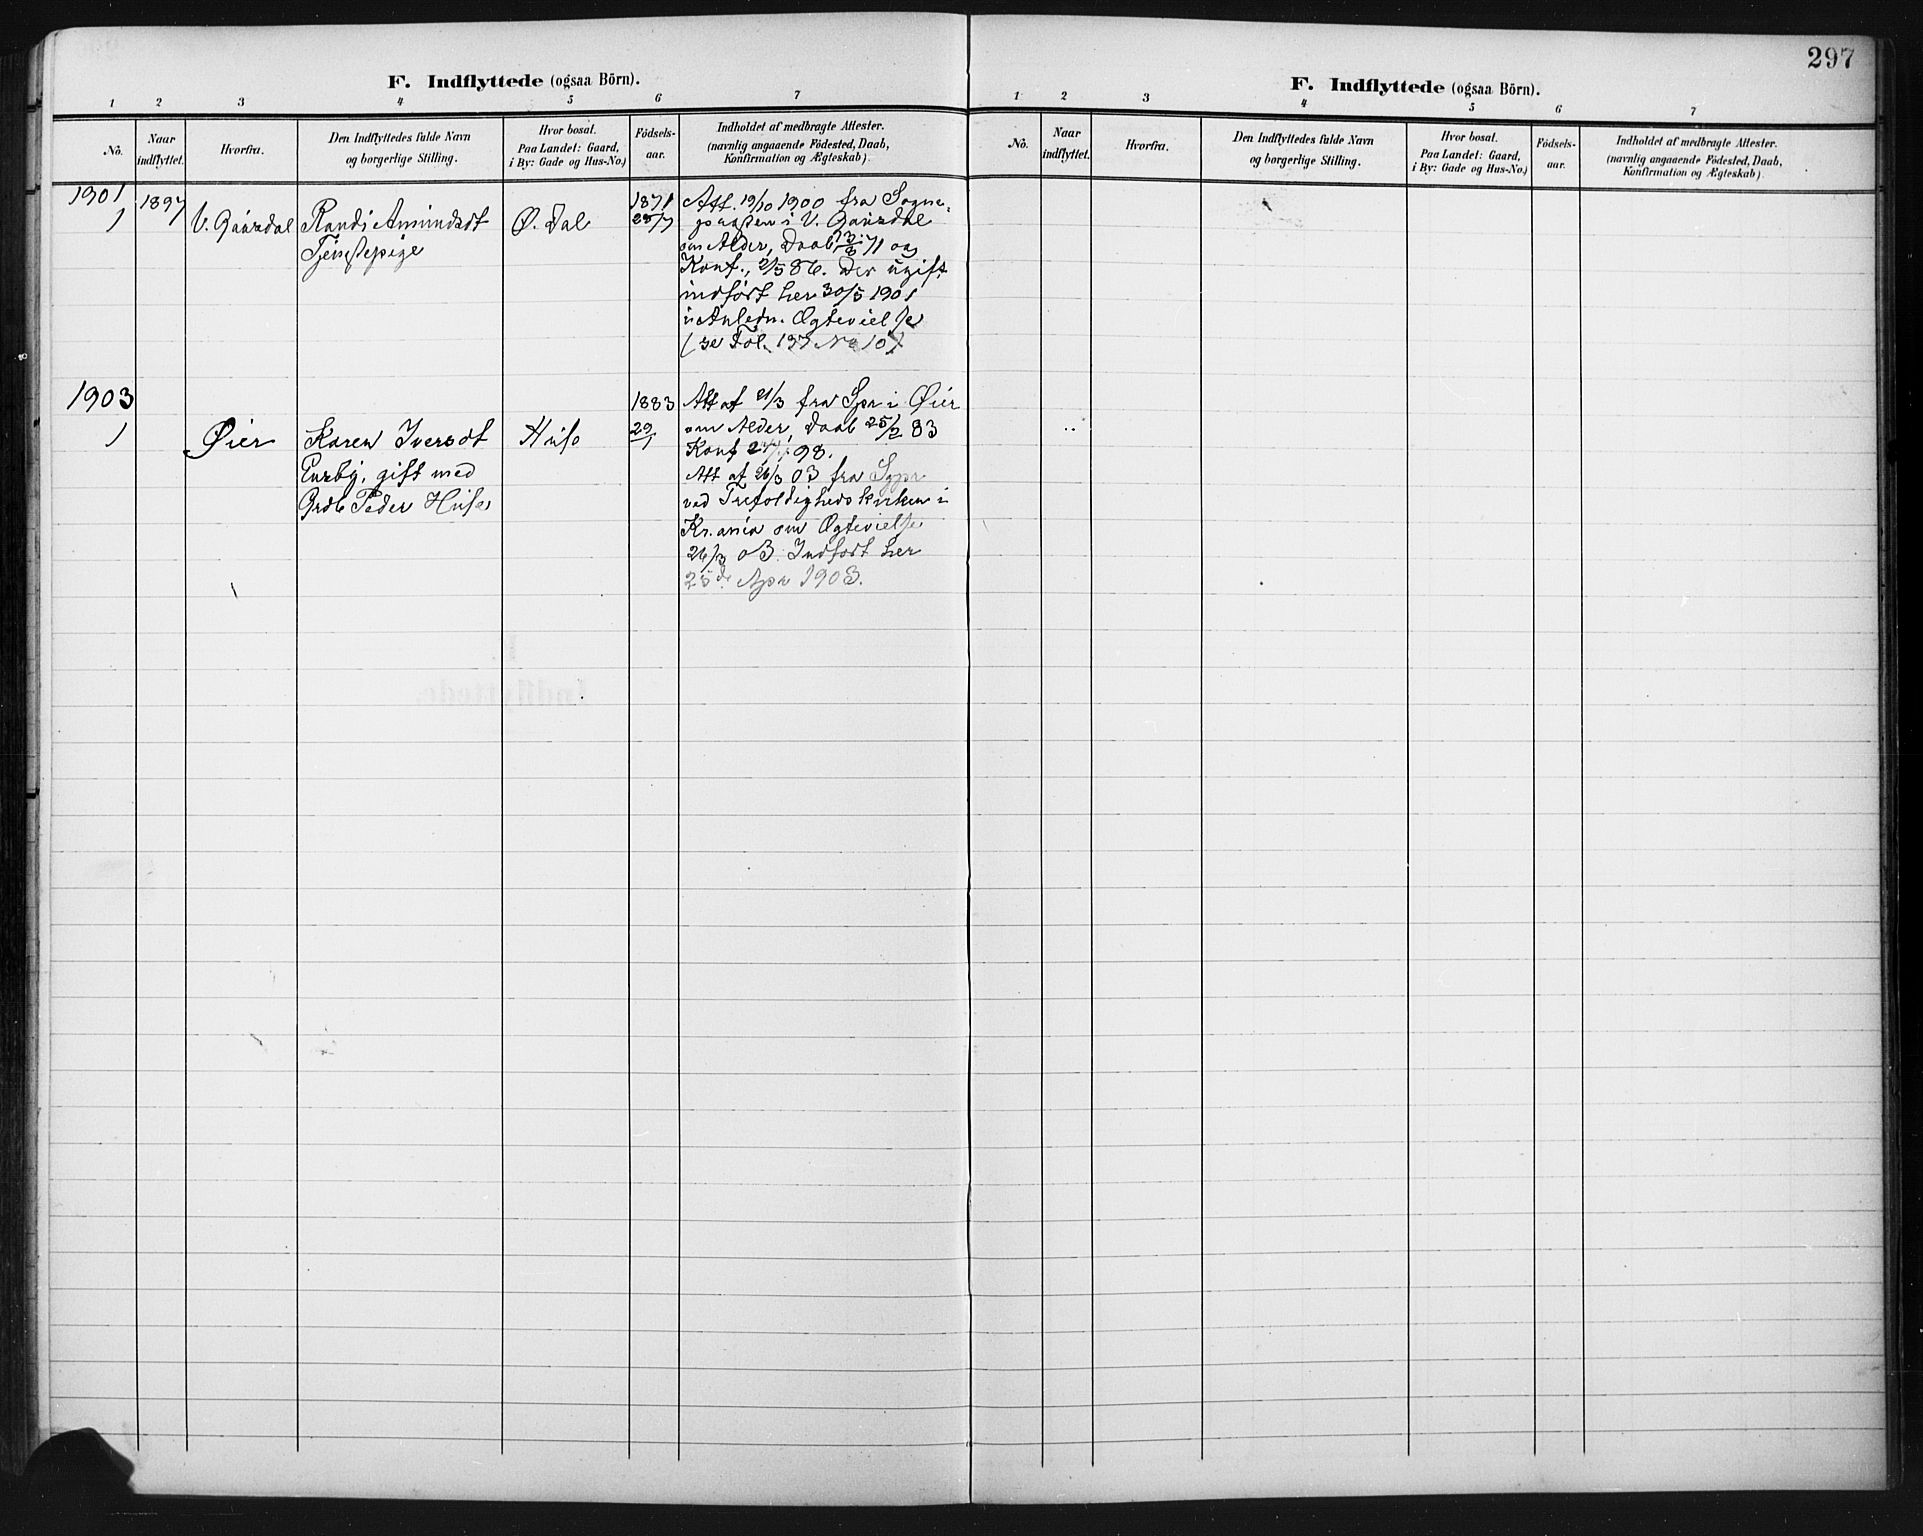 297
F. Indflyttede (ogsaa Börn).
1 2 3 4 5 6 7
No.
Naar indflyttet.
Hvorfra.
Den Indflyttedes fulde Navn
og borgerlige Stilling.
Hvor bosat.
Paa Landet: Gaard,
i By: Gade og Hus-No.)
Födsels-
aar.
Indholdet af medbragte Attester.
(navnlig angaaende Födested, Daab,
Konfirmation og Ægteskab).
1901
1 1897 V. Gausdal
Randi Amundsdt
Tjenestepige
Ø. Dal
1871
25/7
Att. 19/10 1900 fra Sogne-
præsten i V. Gausdal
om Alder, Daab 71 og
Konf., 2/5 86. Der ugift
indført her 30/5 1901
i Anledn. Ægtevielse
(se Fol. 137 No 10)
1903
1 Øier
Karen Iversdt
gift med
Grdb Peder Huse
Huse
1883
29/1
Att af 21/3 fra Spr i Øier
om Alder, Daab 25/2 83
Konf 98.
Att af 26/3 03 fra Sgpr
ved Trefoldighedskirken i
Kr.ania om Ægtevielse
26/3 03. Indført her
25de Apr 1903.
F. Indflyttede (ogsaa Börn).
1 2 3 4 5 6 7
No.
Naar
indflyttet.
Hvorfra.
Den Indflyttedes fulde Navn
og borgerlige Stilling.
Hvor bosat.
Paa Landet: Gaard,
i By: Gade og Hus-No.)
Födsels-
aar.
Indholdet af medbragte Attester.
(navnlig angaaende Födested, Daab,
Konfirmation og Ægteskab).